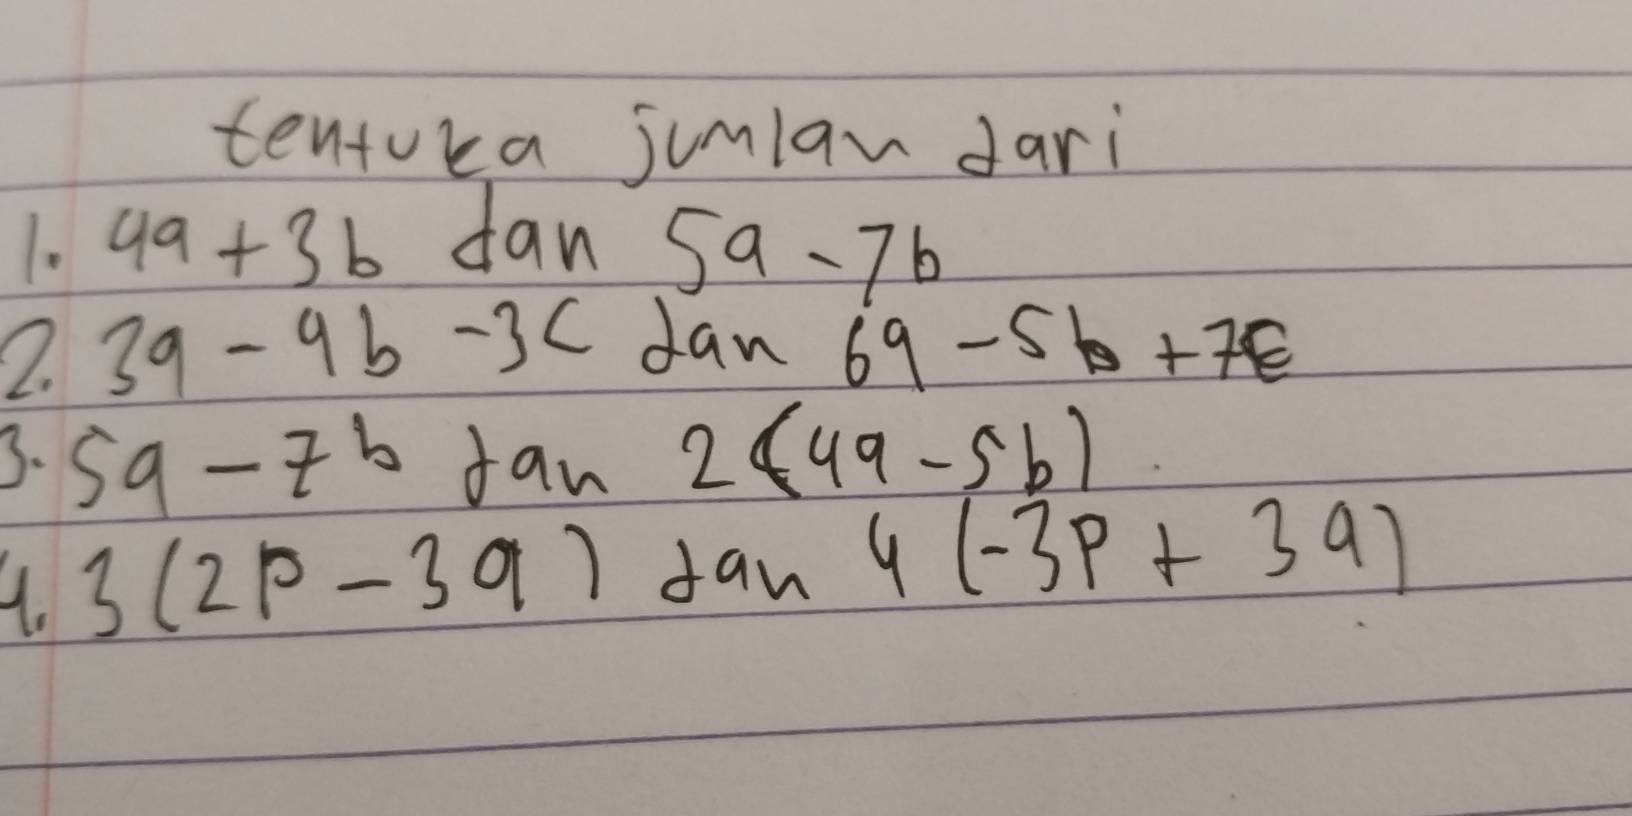 tentuka jumlah dari
1. 4a + 3b dan 5a - 7b
2. 3a - 9b - 3c dan 6a - 5b + 7c
3. 5a - 7b dan 2(4a - 5b)
4. 3(2p - 3q) dan 4(-3p + 3q)